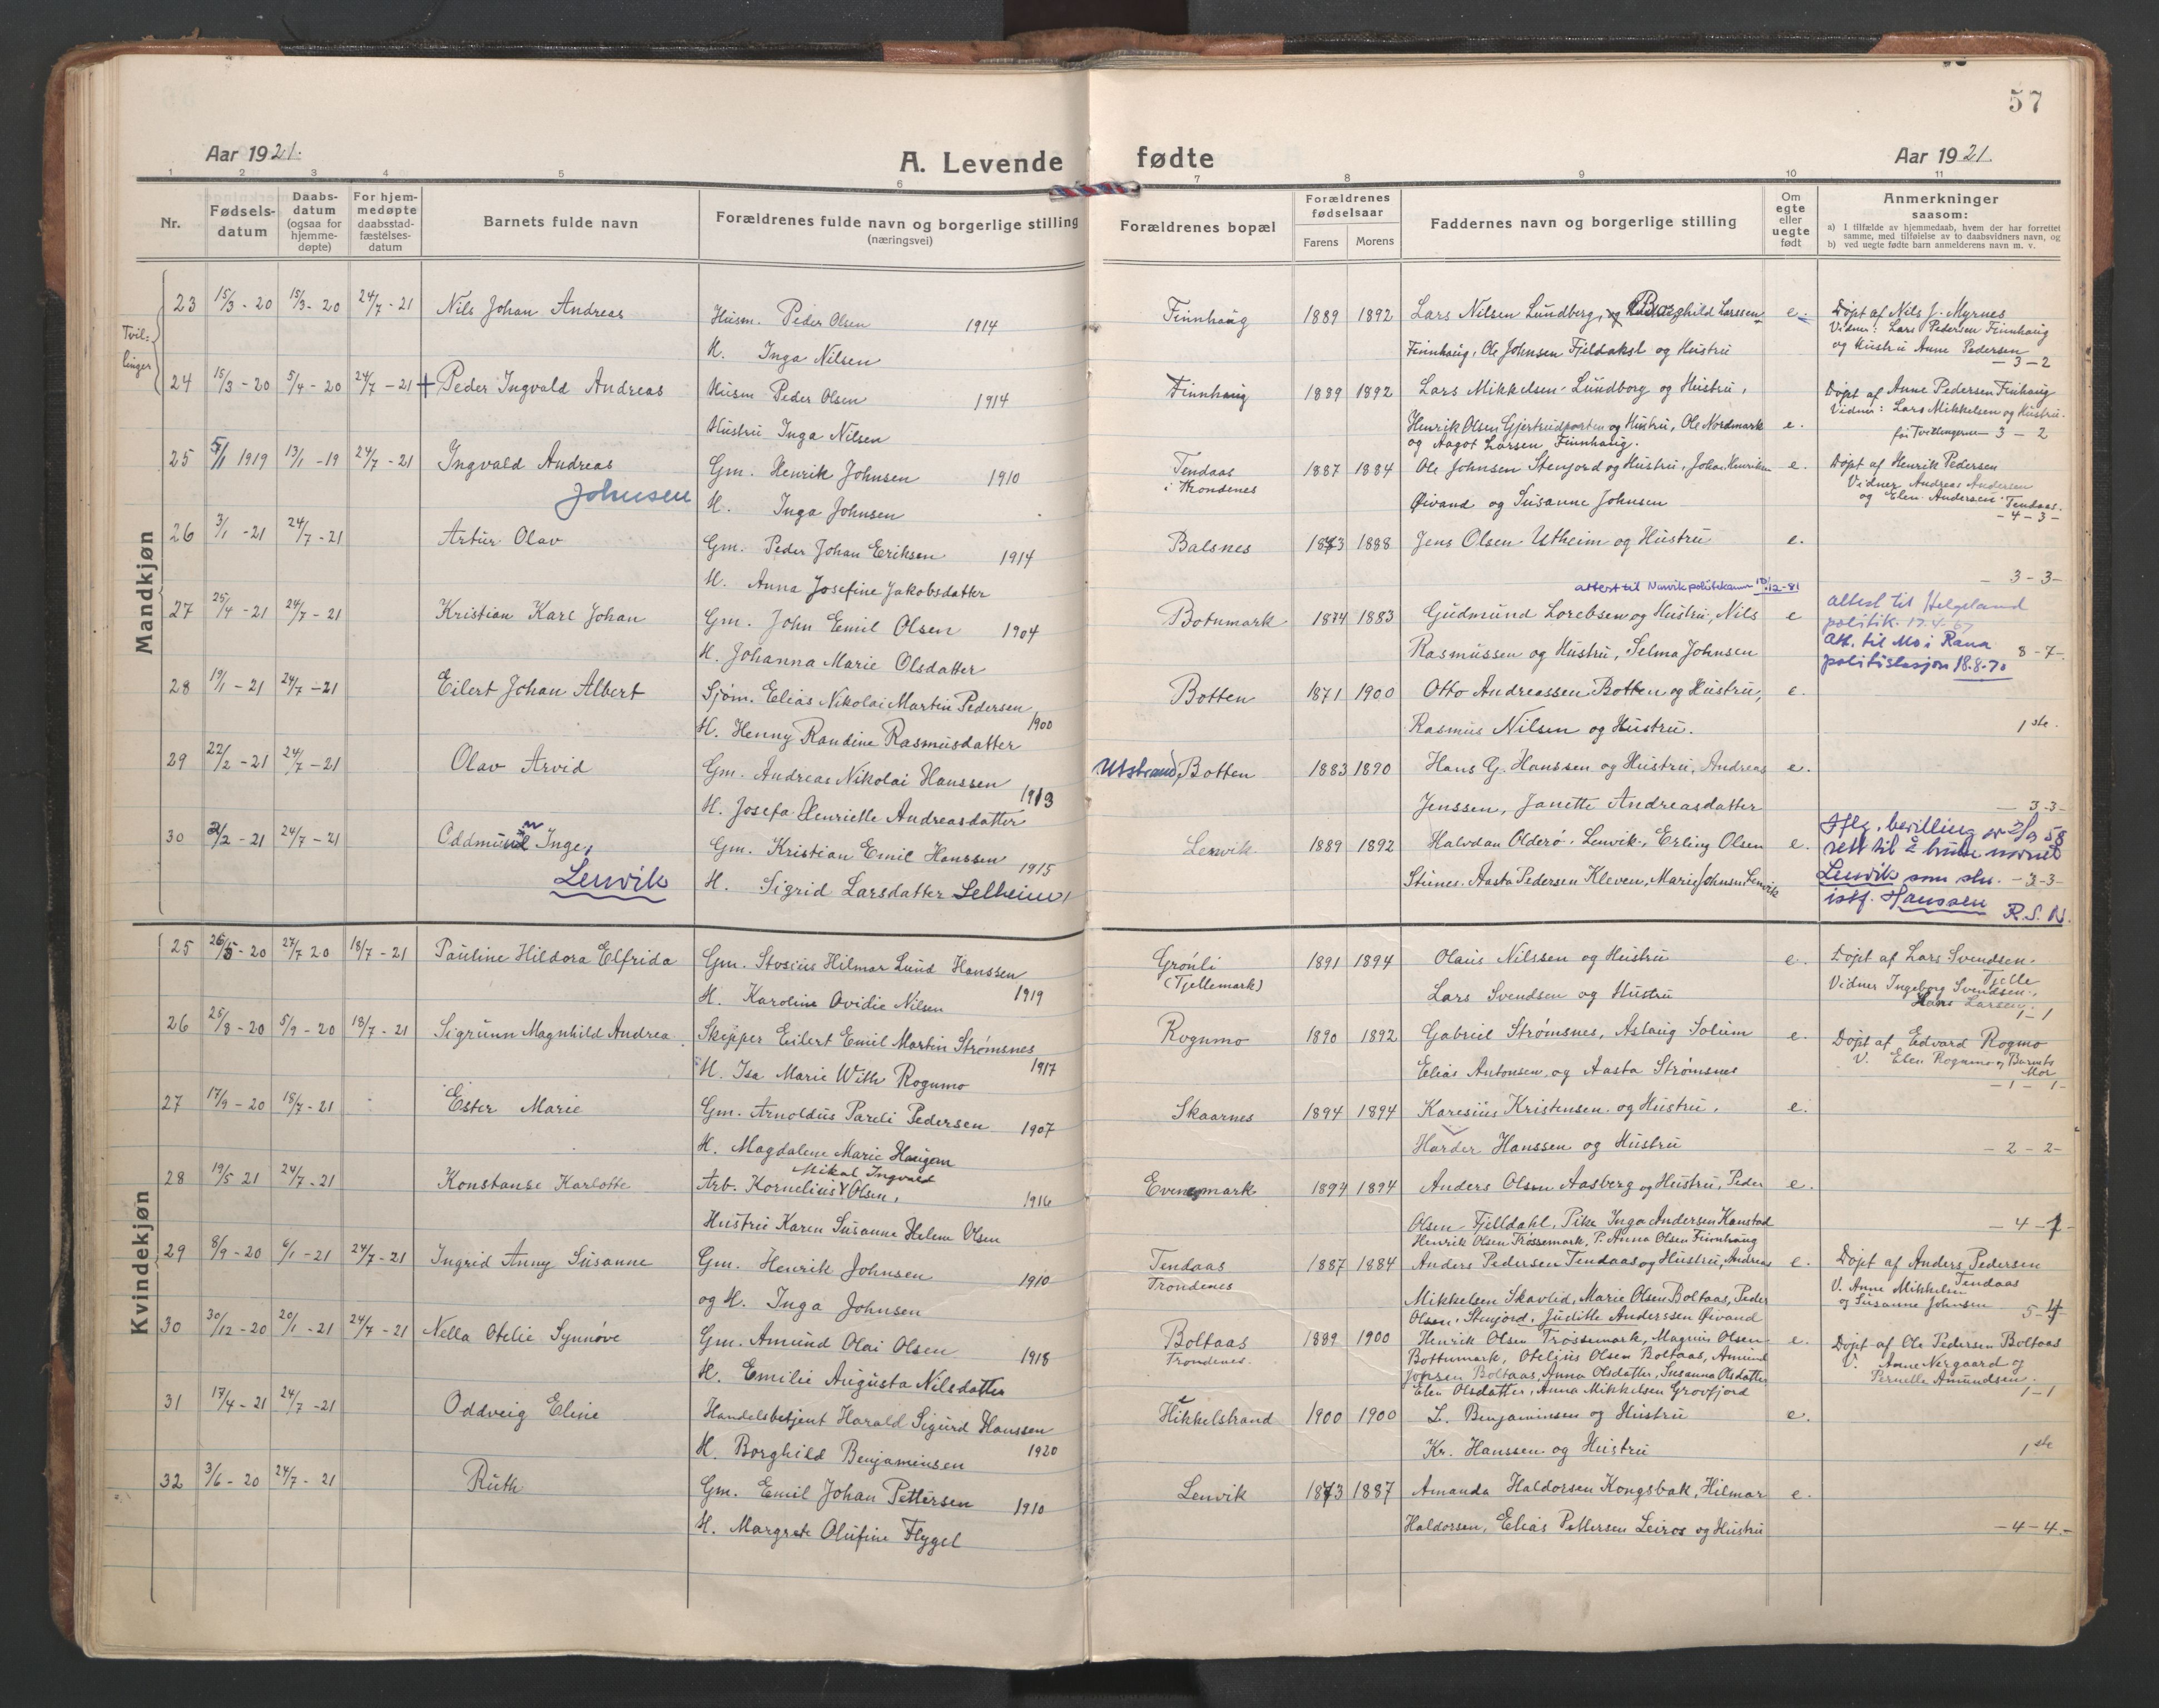 57
Aar 1921.
A. Levende fødte
Aar 1921.
1 2 3 4 5 6 7 8 9 10 11
Nr.
Fødsels-
datum
Daabs-
datum
(ogsaa for
hjemme-
døpte)
For hjem-
medøpte
daabsstad-
fæstelses-
datum
Barnets fulde navn
Forældrenes fulde navn og borgerlige stilling
(næringsvei)
Forældrenes bopæl
Forældrenes
fødselsaar
Farens Morens
Faddernes navn og borgerlige stilling
Om
egte
eller
uegte
født
Anmerkninger
saasom:
a) I tilfælde av hjemmedaab, hvem der har forrettet
samme, med tilføielse av to daabsvidners navn, og
b) ved uegte fødte barn anmelderens navn m. v.
Mandkjøn
Tvil-
linger
23 15/3 - 20 15/3 - 20 24/7 - 21 Nils Johan Andreas Husm. Peder Olsen 1914 Finnhaug 1889 1892 Lars Nilsen Lundberg, og Borghild Larssen e. Døpt af Nils J. Myrnes
Vidner: Lars Pedersen Finnhaug
H. Inga Nilsen Finnhaug, Ole Johnsen Fjeldaksl og Hustru og Hustru Anne Pedersen
- 3 - 2
24 15/3 - 20 5/4 - 20 24/7 - 21 + Peder Ingvald Andreas Husm Peder Olsen 1914 Finnhaug 1889 1892 Lars Mikkelsen Lundborg og Hustru, Døpt af Anne Pedersen Finhaug
Vidner: Lars Mikkelsen og Hustru.
Hustru Inga Nilsen Henrik Olsen Gjertrudporten og Hustru, Ole Nordmark e. for Tvillingerne 3 - 2
og Aagot Larsen Finnhaug.
25 5/1 1919 13/1 - 19 24/7 - 21 Ingvald Andreas Gm. Henrik Johnsen 1910 Tendaas 1887 1884 Ole Johnsen Stenjord og Hustru, Johan Henriksen e. Døpt af Henrik Pedersen
Johnsen H. Inga Johnsen i Trondenes Øivand og Susanne Johnsen Vidner Andreas Andersen
og Elen Andersen Tendaas.
- 4 - 3 -
26 3/1 - 21 24/7 - 21 Artur Olav Gm. Peder Johan Eriksen 1914 Balsnes 1873 1888 Jens Olsen Utheim og Hustru e.
H. Anna Josefine Jakobsdatter - 3 - 3 -
attest til Narvik politikammer 10/12-81
27 25/4 - 21 24/7 - 21 Kristian Karl Johan Gm. John Emil Olsen 1904 Botnmark 1874 1883 Gudmund Lorebsen og Hustru, Nils e attest til Helgeland
politik. 17.4.67
H. Johanna Marie Olsdatter Rasmussen og Hustru, Selma Johnsen att. til Mo i Rana 8 - 7 -
politistasjon 18.8.70
28 19/1 - 21 24/7 - 21 Eilert Johan Albert Sjøm. Elias Nikolai Martin Pedersen 1900 Botten 1871 1900 Otto Andreassen Botten og Hustru, e.
H. Henny Randine Rasmusdatter Rasmus Nilsen og Hustru. 1ste.
29 22/2 - 21 24/7 - 21 Olav Arvid Gm. Andreas Nikolai Hanssen 1913 Utstrand, Botten 1883 1890 Hans G. Hanssen og Hustru, Andreas e.
H. Josefa Henriette Andreasdatter Jenssen, Janette Andreasdatter - 3-3-
30 2/2 - 21 24/7 - 21 Oddmund Inge, Gm. Kristian Emil Hanssen 1915 Lenvik 1889 1892 Halvdan Olderø, Lenvik, Erling Olsen e. Iflg. bevilling av 2/9 58
rett til å bruke navnet
Lenvik H. Sigrid Larsdatter Selheim, Stunes. Aasta Pedersen Kleven, Marie Johnsen Lenvik Lenvik som sln. - 3-3-
istf. Hanssen R.S.N.
Kvindekjøn
25 26/5 - 20 27/7 20 18/7 - 21 Pauline Hildora Elfrida Gm. Stosius Hilmar Lund Hanssen 1919 Grønli 1891 1894 Olaus Nilssen og Hustru e. Døpt af Lars Svendsen.
Tjelle
H. Karoline Ovidie Nilsen (Tjellemark) Lars Svendsen og Hustru Vidner Ingeborg Svendsen,
Hans Larsen.
1 - 1
26 25/8 - 20 5/9 - 20 18/7 - 21 Sigrunn Magnhild Andrea Skipper Eilert Emil Martin Strømsnes 1917 Rognmo 1890 1892 Gabriel Strømsnes, Aslaug Solum e. Døpt af Edvard Rogmo
H. Isa Marie With Rognmo Elias Antonsen og Aasta Strømsnes V. Elen Rognmo og Barnets
Mor
- 1 - 1 -
27 17/9 - 20 18/7 - 21 Ester Marie Gm. Arnoldus Pareli Pedersen 1907 Skaarnes 1894 1894 Karesius Kristensen og Hustru, e.
H. Magdalene Marie Haugom Harder Hanssen og Hustru - 2 - 2 -
28 19/5 21 24/7 - 21 Konstanse Karlotte Arb. Kornelius Mikal Ingvald Olsen, 1916 Evenesmark 1894 1894 Anders Olsen Aasberg og Hustru, Peder e.
Hustru Karen Susanne Helene Olsen Olsen Fjelldahl, Pike Inga Andersen Kanstad - 4 - 1 -
Henrik Olsen Trøssemark, P. Anna Olsen Finnhaug
29 8/9 - 20 6/1 - 21 24/7 - 21 Ingrid Anny Susanne Gm. Henrik Johnsen 1910 Tendaas 1887 1884 Anders Pedersen Tendaas og Hustru, Andreas e. Døpt af Anders Pedersen
Tendaas
og H. Inga Johnsen Trondenes Mikkelsen Skavlid, Marie Olsen Boltaas, Peder V. Anne Mikkelsen
Olsen, Stenjord, Judithe Anderssen Øivand og Susanne Johnsen 5 - 4
30 30/12 - 20 20/1 - 21 24/7 - 21 Nella Otelie Synnøve Gm. Amund Olai Olsen 1918 Boltaas 1889 1900 Henrik Olsen Trøssemark, Magnus Olsen e. Døpt af Ole Pedersen Boltaas
Trondenes. Bottnmark, Oteljus Olsen Boltaas, Amund V. Anne Nergaard og
H. Emilie Augusta Nilsdatter Jonsen Boltaas, Anna Olsdatter, Susanna Olsdatter Pernelle Amundsen.
Elen Olsdatter, Anna Mikkelsen Grovfjord 1 - 1
31 17/4 - 21 24/7 - 21 Oddveig Eline Handelsbetjent Harald Sigurd Hanssen 1920 Hikkelstrand 1900 1900 L. Benjaminsen og Hustru e.
H. Borghild Benjaminsen Kr. Hanssen og Hustru 1ste
32 3/6 - 20 24/7 - 21 Ruth Gm. Emil Johan Pettersen 1910 Lenvik 1873 1887 Amanda Haldorsen Kongsbak, Hilmar e.
H. Margrete Olufine Flygel Haldorsen, Elias Pettersen Leiros og Hustru - 4 - 4 -